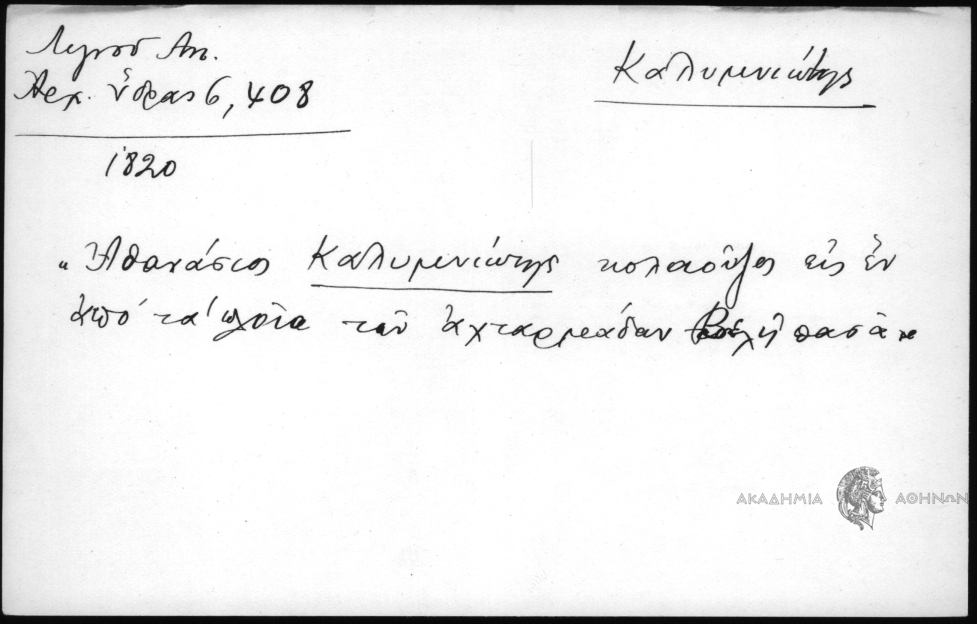 Λιγνοῦ Ἀντ.
Ἀρχ. Ὕδρας 6, 408
Καλυμνιώτης
1820
"Ἀθανάσιος Καλυμνιώτης κολαοῦζος εἰς ἓν
ἀπὸ τὰ πλοῖα τῶν ἀχταρμάδων πασᾶ"
ΑΚΑΔΗΜΙΑ ΑΘΗΝΩΝ